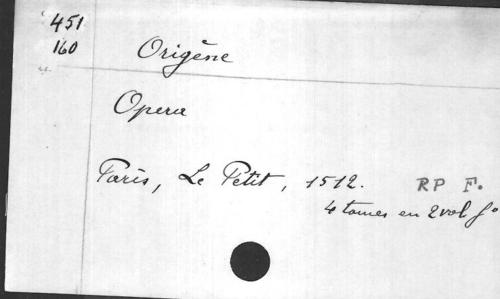 451
160
Origène
Opera
Paris, Le Petit, 1512. RP F.
4 tomes en 2 vol fo